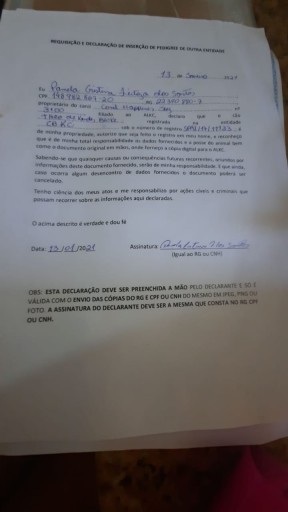 REQUISIÇÃO E DECLARAÇÃO DE INSERÇÃO DE PEDIGREE DE OUTRA ENTIDADE
13 de Janeiro 2021
Eu Pamela
CPF RG
proprietário do canil nº
filiado ao ALKC, declaro que o cão
registrado na entidade
CBKC sob o número de registro é
de minha propriedade, autorizo que seja feito o registro em meu nome, e reconheço
que é de minha total responsabilidade os dados fornecidos e a posse do animal bem
como o documento original em mãos, onde forneço a cópia digital para o ALKC.
Sabendo se que quaisquer causas ou consequências futuras decorrentes, oriundas por
informações deste documento fornecido, serão de minha responsabilidade. E que ainda,
caso ocorra algum desencontro de dados fornecidos o documento poderá ser
cancelado.
Tenho ciência dos meus atos e me responsabilizo por ações cíveis e criminais que
possam recorrer sobre as informações aqui declaradas.
O acima descrito é verdade e dou fé
Data: 13/01/2021 Assinatura:
(Igual ao RG ou CNH)
OBS: ESTA DECLARAÇÃO DEVE SER PREENCHIDA A MÃO PELO DECLARANTE E SÓ É
VÁLIDA COM O ENVIO DAS CÓPIAS DO RG E CPF OU CNH DO MESMO EM JPEG, PNG OU
FOTO. A ASSINATURA DO DECLARANTE DEVE SER A MESMA QUE CONSTA NO RG, CPF
OU CNH.